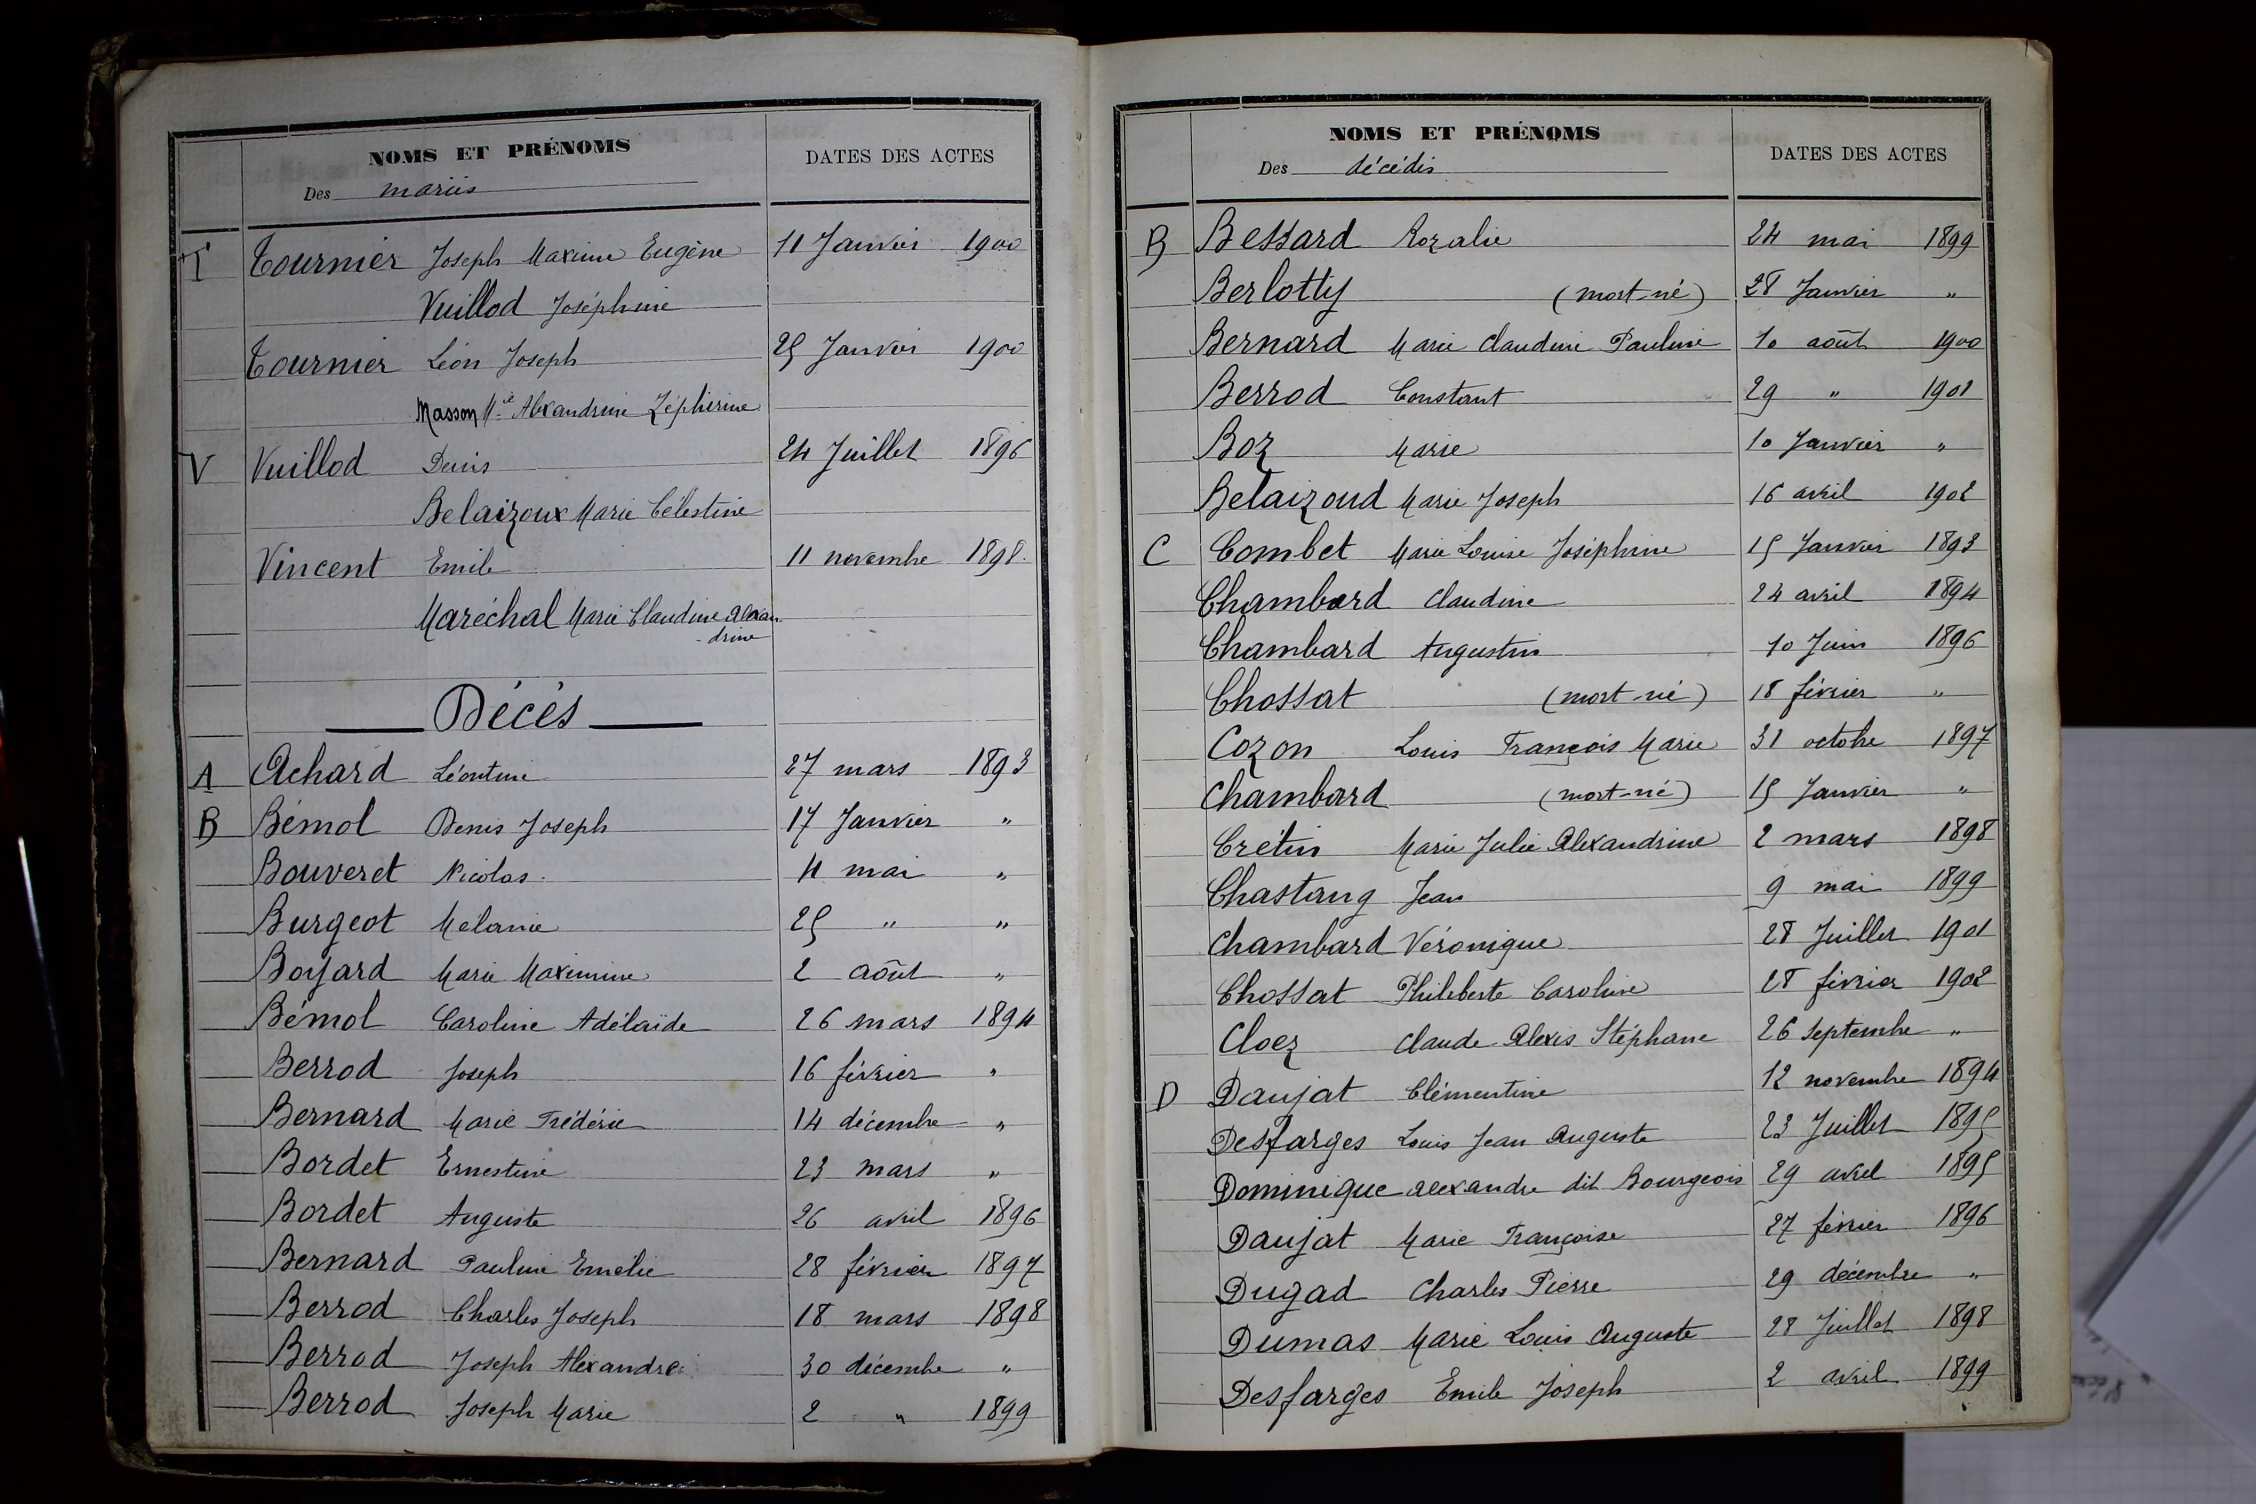 NOMS ET PRÉNOMS
DATES DES ACTES
Des mariés
T Tournier Joseph Maxime Eugène 11 Janvier 1900
Vuillod Joséphine
Tournier Léon Joseph 25 Janvier 1900
Masson Mie Alexandrine Zéphirine
V Vuillod Denis 24 Juillet 1896
Belaizoux Marie Célestine
Vincent Emile 11 novembre 1898
Maréchal Marie Claudine Alexan
-drine
Décès
A Achard Léontine 27 mars 1893
B Bémol Denis Joseph 17 Janvier "
Bouveret Nicolas 11 mai "
Burgeot Mélanie 25 " "
Boyard Marie Maximine 2 août "
Bémol Caroline Adélaïde 26 mars 1894
Berrod Joseph 16 février "
Bernard Marie Frédéric 14 décembre "
Bordet Ernestine 23 mars "
Bordet Auguste 26 avril 1896
Bernard Pauline Emélie 28 février 1897
Berrod Charles Joseph 18 mars 1898
Berrod Joseph Alexandre 30 décembre "
Berrod Joseph Marie 2 " 1899
NOMS ET PRÉNOMS
DATES DES ACTES
Des décédés
B Bessard Rozalie 24 mai 1899
Berlotty (mort-né) 28 Janvier "
Bernard Marie Claudine Pauline 10 août 1900
Berrod Constant 29 " 1901
Boz Marie 10 Janvier "
Belaizoud Marie Joseph 16 avril 1902
C Combet Marie Louise Joséphine 15 Janvier 1893
Chambard Claudine 24 avril 1894
Chambard Augustin 10 Juin 1896
Chossat (mort-né) 18 février "
Cozon Louis François Marie 31 octobre 1897
Chambard (mort-né) 15 Janvier "
Crétin Marie Julie Alexandrine 2 mars 1898
Chastang Jean 9 mai 1899
Chambard Véronique 28 Juillet 1901
Chossat Philiberte Caroline 28 février 1902
Cloez Claude Alexis Stéphane 26 Septembre "
D Daujat Clémentine 12 novembre 1894
Desfarges Louis Jean Auguste 23 Juillet 1895
Dominique Alexandre dit Bourgeois 29 avril 1895
Daujat Marie Françoise 27 février 1896
Dugad Charles Pierre 29 décembre "
Dumas Marie Louis Auguste 28 Juillet 1898
Desfarges Emile Joseph 2 avril 1899